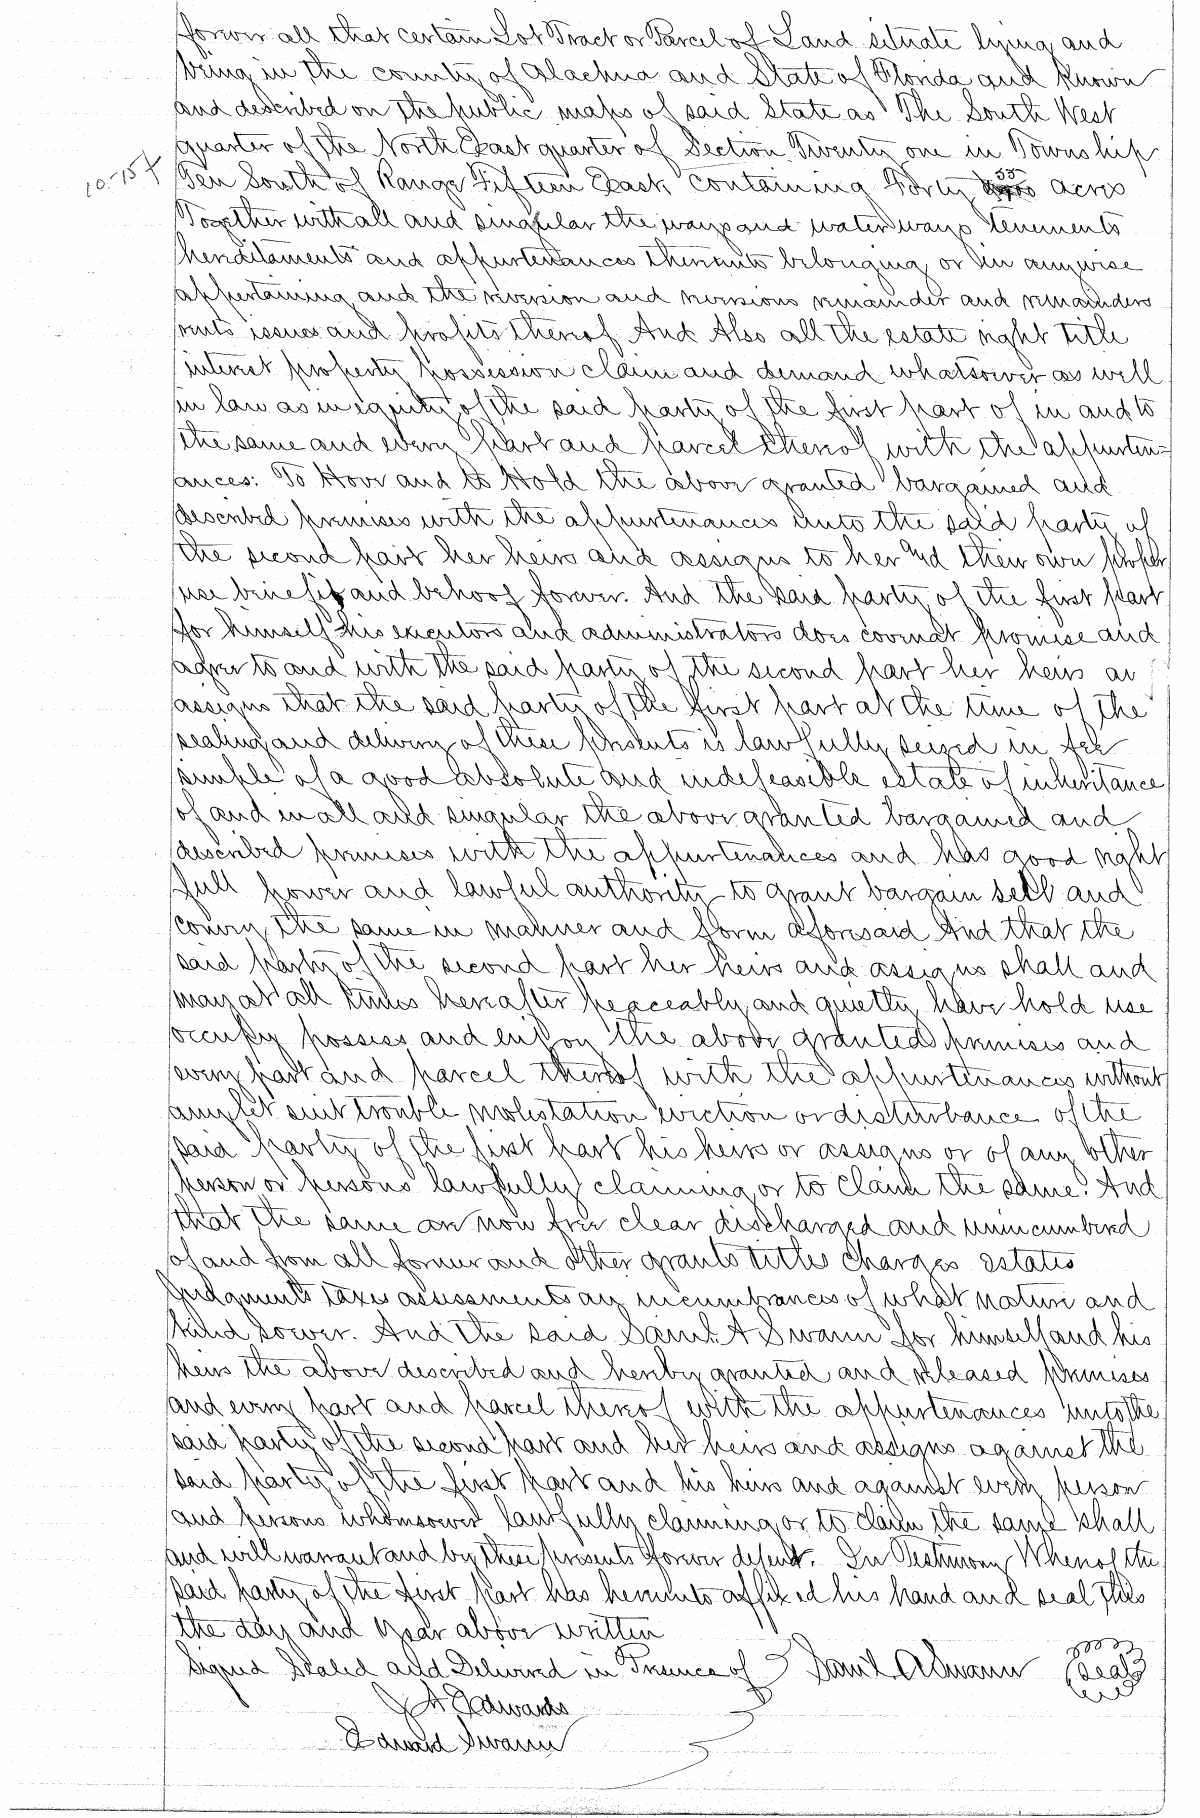 forever all that certain Lot Tract or Parcel of Land situate lying and
being in the county of Alachua and State of Florida and known
and described on the public maps of said State as The South West
quarter of the North East quarter of Section Twenty one in Township
10-15
Ten South of Range Fifteen East, containing Forty acres
Together with all and singular the ways and water ways tenements
hereditaments and appurtenances thereunto belonging or in anywise
appertaining and the reversion and reversions remainder and remainders
rents issues and profits thereof And Also all the estate right title
interest property possession claim and demand whatsoever as well
in law as in equity of the said party of the first part of in and to
the same and every part and parcel thereof with the appurten=
ances: To Have and to Hold the above granted bargained and
described premises with the appurtenances unto the said party of
the second part her heirs and assigns to her and their own proper
use benefit and behoof forever. And the said party of the first part
for himself his executors and administrators does covenat promise and
agree to and with the said party of the second part her heirs an
assigns that the said party of the first part at the time of the
sealing and delivery of these presents is lawfully seized in fee
simple of a good absolute and indefeasible estate of inheritance
of and in all and singular the above granted bargained and
described premises with the appurtenances and has good right
full power and lawful authority to grant bargain sell and
convey the same in manner and form aforesaid And that the
said party of the second part her heirs and assigns shall and
may at all times hereafter peaceably and quietly have hold use
occupy possess and enjoy the above granted premises and
every part and parcel thereof with the appurtenances without
any let suit trouble molestation eviction or disturbance of the
said party of the first part his heirs or assigns or of any other
person or persons lawfully claiming or to claim the same. And
that the same are now free clear discharged and unincumbered
of and from all former and other grants titles charges estates
judgments taxes assessments an incumbrances of what nature and
kind soever. And the said Saml. A Swann for himself and his
heirs the above described and hereby granted and released premises
and every part and parcel thereof with the appurtenances unto the
said party of the second part and her heirs and assigns against the
said party of the first part and his heirs and against every person
and persons whomsoever lawfully claiming or to claim the same shall
and will warrant and by these presents forever defend. In Testimony Whereof the
said party of the first part has hereunto affixed his hand and seal this
the day and year above written
Signed Sealed and Delivered in Presence of Saml. A Swann Seal
J A Edwards
Edward Swann